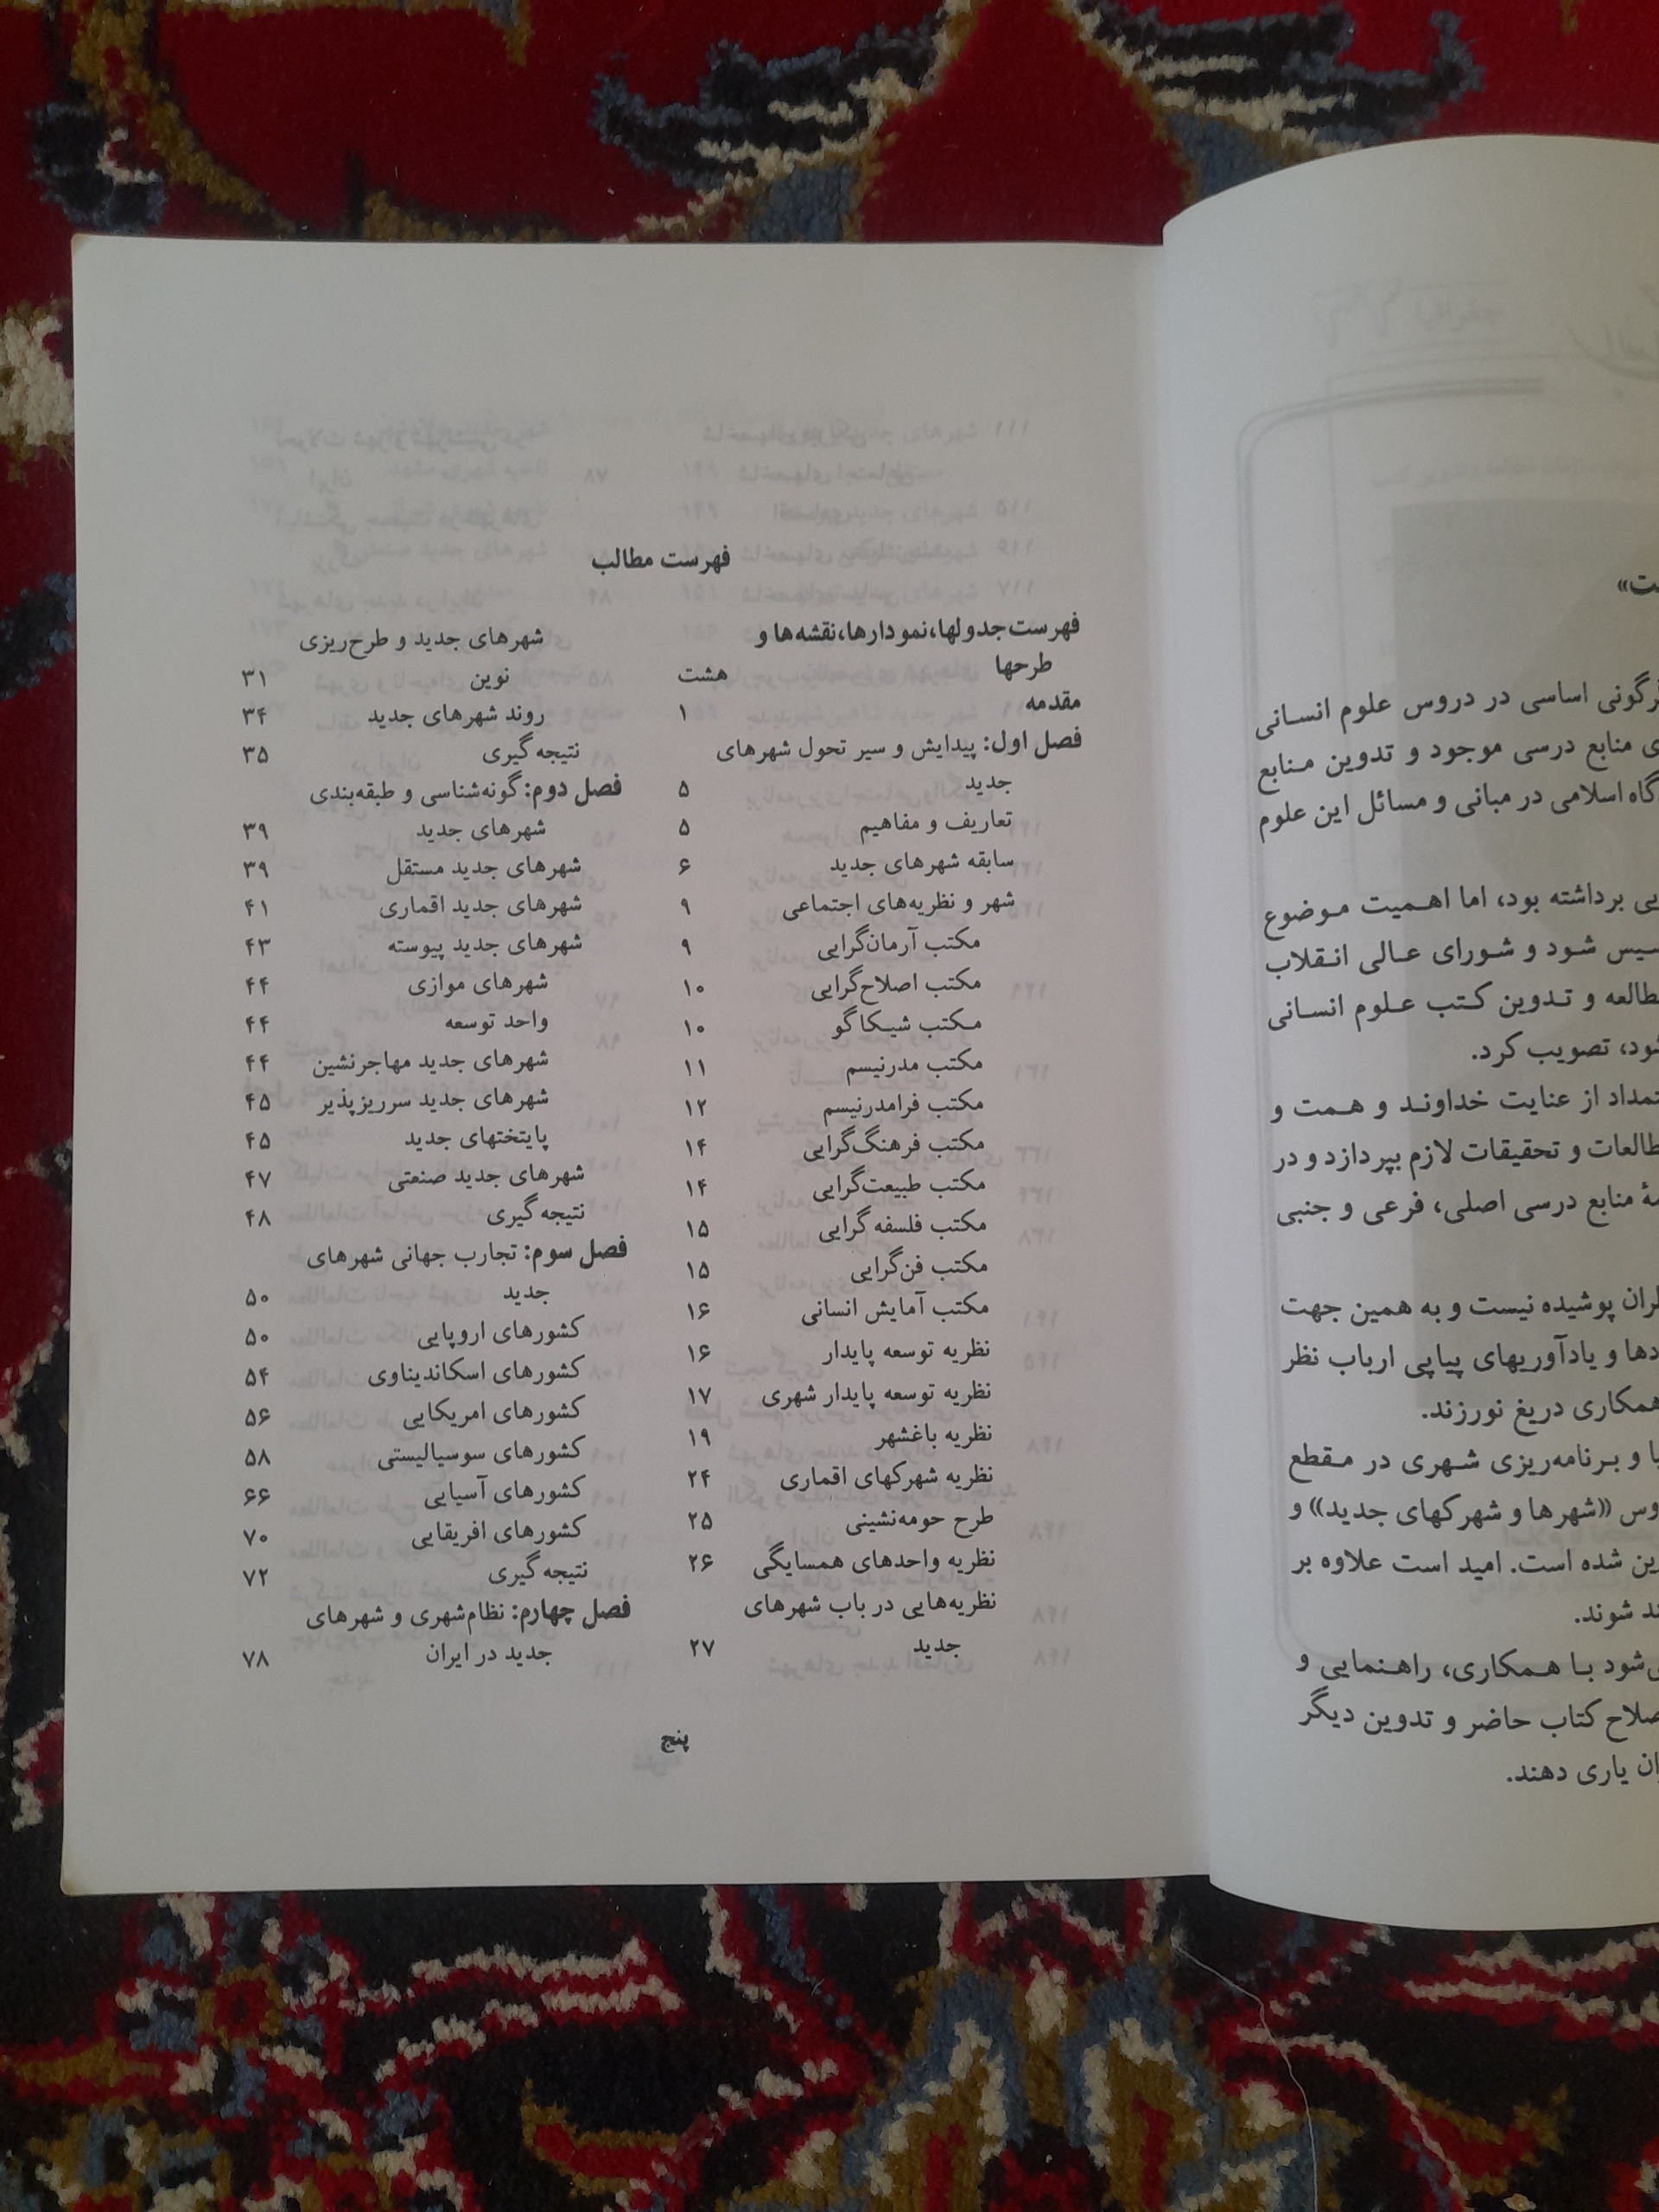 ت»
رگونی اساسی در دروس علوم انسانی
ی منابع درسی موجود و تدوین منابع
گاه اسلامی در مبانی و مسائل این علوم
یی برداشته بود، اما اهمیت موضوع
سیس شود و شورای عالی انقلاب
طالعه و تدوین کتب علوم انسانی
شود، تصویب کرد.
تمداد از عنایت خداوند و همت و
طالعات و تحقیقات لازم بپردازد و در
مۀ منابع درسی اصلی، فرعی و جنبی
ران پوشیده نیست و به همین جهت
دها و یادآوریهای پیاپی ارباب نظر
همکاری دریغ نورزند.
یا و برنامه‌ریزی شهری در مقطع
وس «شهرها و شهرکهای جدید» و
ین شده است. امید است علاوه بر
ند شوند.
ی‌شود با همکاری، راهنمایی و
صلاح کتاب حاضر و تدوین دیگر
ان یاری دهند.
فهرست مطالب
فهرست جدولها، نمودارها، نقشه‌ها و
طرحها هشت
مقدمه ۱
فصل اول: پیدایش و سیر تحول شهرهای
جدید ۵
تعاریف و مفاهیم ۵
سابقه شهرهای جدید ۶
شهر و نظریه‌های اجتماعی ۹
مکتب آرمان‌گرایی ۹
مکتب اصلاح‌گرایی ۱۰
مکتب شیکاگو ۱۰
مکتب مدرنیسم ۱۱
مکتب فرامدرنیسم ۱۲
مکتب فرهنگ‌گرایی ۱۴
مکتب طبیعت‌گرایی ۱۴
مکتب فلسفه‌گرایی ۱۵
مکتب فن‌گرایی ۱۵
مکتب آمایش انسانی ۱۶
نظریه توسعه پایدار ۱۶
نظریه توسعه پایدار شهری ۱۷
نظریه باغشهر ۱۹
نظریه شهرکهای اقماری ۲۴
طرح حومه‌نشینی ۲۵
نظریه واحدهای همسایگی ۲۶
نظریه‌هایی در باب شهرهای
جدید ۲۷
شهرهای جدید و طرح‌ریزی
نوین ۳۱
روند شهرهای جدید ۳۴
نتیجه‌گیری ۳۵
فصل دوم: گونه‌شناسی و طبقه‌بندی
شهرهای جدید ۳۹
شهرهای جدید مستقل ۳۹
شهرهای جدید اقماری ۴۱
شهرهای جدید پیوسته ۴۳
شهرهای موازی ۴۴
واحد توسعه ۴۴
شهرهای جدید مهاجرنشین ۴۴
شهرهای جدید سرریزپذیر ۴۵
پایتختهای جدید ۴۵
شهرهای جدید صنعتی ۴۷
نتیجه‌گیری ۴۸
فصل سوم: تجارب جهانی شهرهای
جدید ۵۰
کشورهای اروپایی ۵۰
کشورهای اسکاندیناوی ۵۴
کشورهای امریکایی ۵۶
کشورهای سوسیالیستی ۵۸
کشورهای آسیایی ۶۶
کشورهای افریقایی ۷۰
نتیجه‌گیری ۷۲
فصل چهارم: نظام‌شهری و شهرهای
جدید در ایران ۷۸
پنج